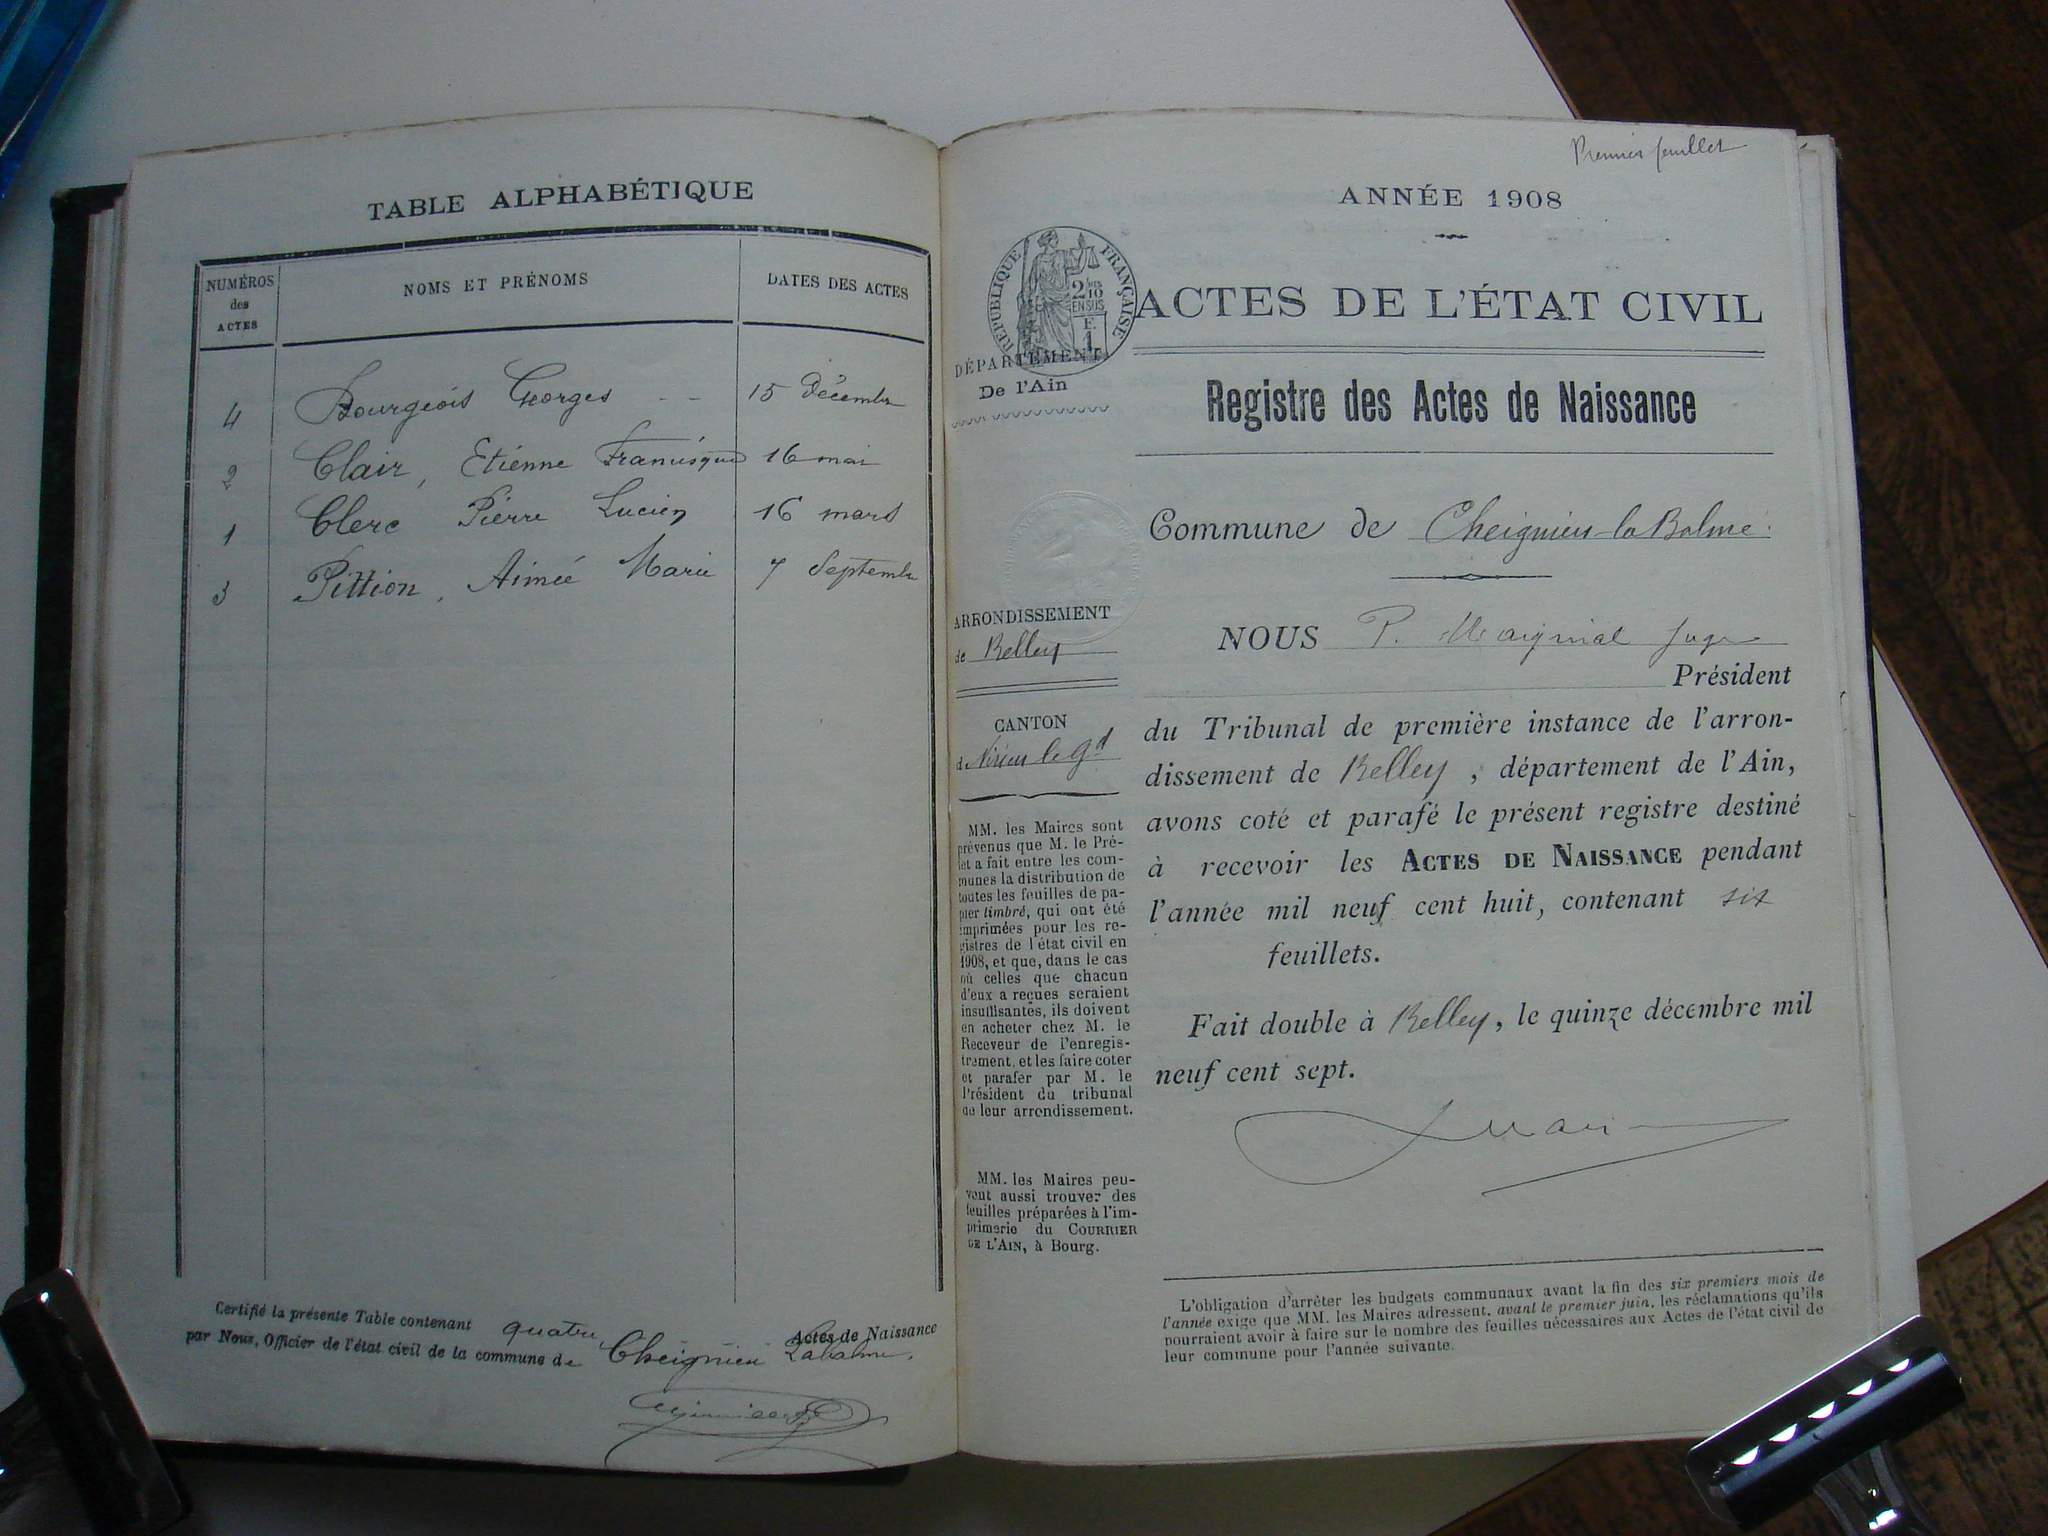 TABLE ALPHABÉTIQUE
NUMÉROS
des
ACTES
NOMS ET PRÉNOMS
DATES DES ACTES
4 Bourgeois Georges -- 15 Décembre
2 Clair, Etienne Francisque 16 mai
1 Clerc Pierre Lucien 16 mars
3 Pittion, Aimée Marie 7 Septembre
Certifié la présente Table contenant quatre Actes de Naissance
par Nous, Officier de l'état civil de la commune de Cheignieu Labalme.
Premier feuillet
ANNÉE 1908
RÉPUBLIQUE FRANÇAISE
2/10
EN SUS
ACTES DE L'ÉTAT CIVIL
DÉPARTEMENT
De l'Ain
Registre des Actes de Naissance
Commune de Cheignieu-la Balme
ARRONDISSEMENT
de Belley
CANTON
de Virieu le Gd
MM. les Maires sont
prévenus que M. le Pré-
fet a fait entre les com-
munes la distribution de
toutes les feuilles de pa-
pier timbré, qui ont été
imprimées pour les re-
gistres de l'état civil en
1908, et que, dans le cas
où celles que chacun
d'eux a reçues seraient
insuffisantes, ils doivent
en acheter chez M. le
Receveur de l'enregis-
trement, et les faire coter
et parafer par M. le
Président du tribunal
de leur arrondissement.
MM. les Maires peu-
vent aussi trouver des
feuilles préparées à l'im-
primerie du COURRIER
DE L'AIN, à Bourg.
NOUS P. Maignial Juge
Président
du Tribunal de première instance de l'arron-
dissement de Belley, département de l'Ain,
avons coté et parafé le présent registre destiné
à recevoir les ACTES DE NAISSANCE pendant
l'année mil neuf cent huit, contenant six
feuillets.
Fait double à Belley, le quinze décembre mil
neuf cent sept.
L'obligation d'arrêter les budgets communaux avant la fin des six premiers mois de
l'année exige que MM. les Maires adressent, avant le premier juin, les réclamations qu'ils
pourraient avoir à faire sur le nombre des feuilles nécessaires aux Actes de l'état civil de
leur commune pour l'année suivante.